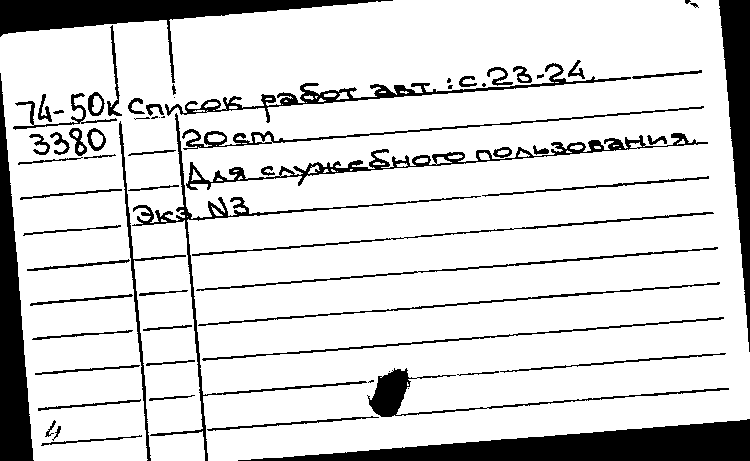 74-50к Список работ авт. : с.23-24.
3380 20 ст.
Для служебного пользования.
Экз. N3.
4